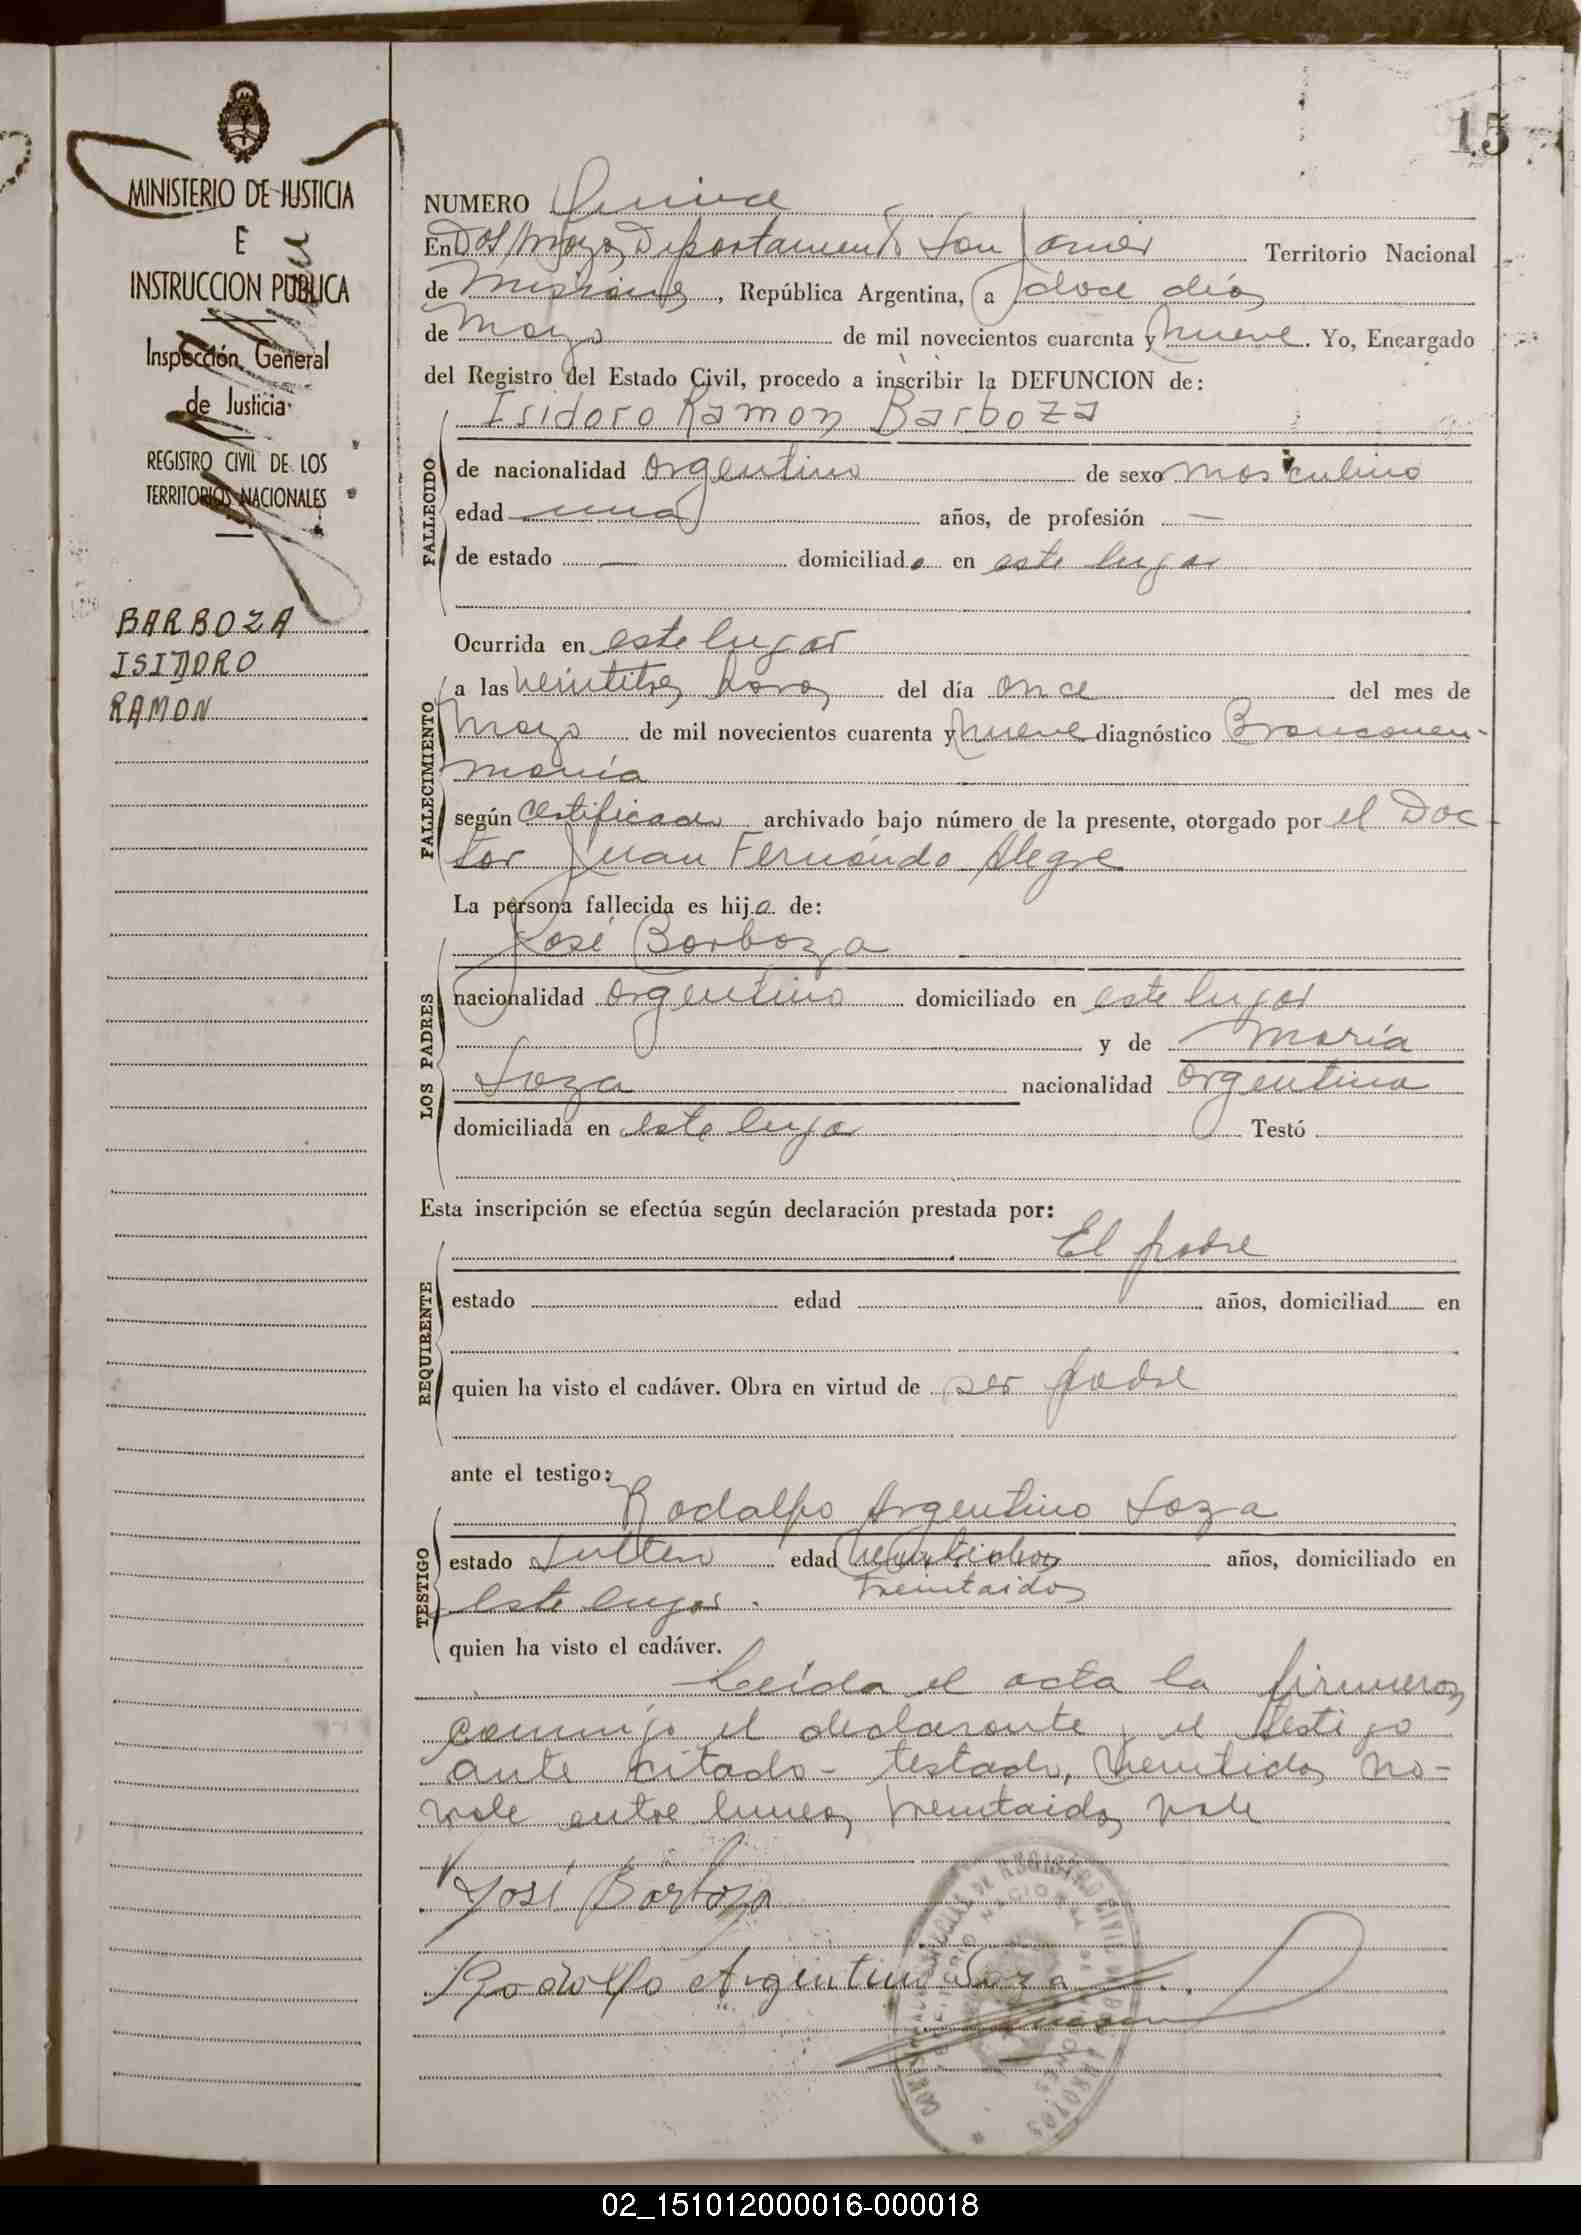 15
MINISTERIO DE JUSTICIA
E
INSTRUCCION PUBLICA
Inspección General
de Justicia
REGISTRO CIVIL DE LOS
TERRITORIOS NACIONALES
BARBOZA
ISIDORO
RAMON
NUMERO Quince
En Dos Mayo, Departamento San Javier Territorio Nacional
de Misiones, República Argentina, a doce días
de Mayo de mil novecientos cuarenta y nueve. Yo, Encargado
del Registro del Estado Civil, procedo a inscribir la DEFUNCION de:
Isidoro Ramon Barboza
FALLECIDO
de nacionalidad argentino de sexo masculino
edad una años, de profesión —
de estado — domiciliado en este lugar
Ocurrida en este lugar
FALLECIMIENTO
a las veintitres horas del día once del mes de
Mayo de mil novecientos cuarenta y nueve diagnóstico Bronconeu-
monía
según certificado archivado bajo número de la presente, otorgado por el Doc-
tor Juan Fernando Alegre
La persona fallecida es hijo de:
LOS PADRES
José Barboza
nacionalidad argentino domiciliado en este lugar
y de María
Soza nacionalidad argentina
domiciliada en este lugar Testó
Esta inscripción se efectúa según declaración prestada por:
REQUIRENTE
El padre
estado edad años, domiciliad en
quien ha visto el cadáver. Obra en virtud de ser padre
ante el testigo:
TESTIGO
Rodolfo Argentino Soza
estado soltero edad años, domiciliado en
treintaidos
este lugar.
quien ha visto el cadáver.
Leída el acta la firmaron
conmigo el declarante y el testigo
ante citado - testado, veintidos no-
vale entre lineas, treintaidos vale
José Barboza
Rodolfo Argentino Soza
02_151012000016-000018